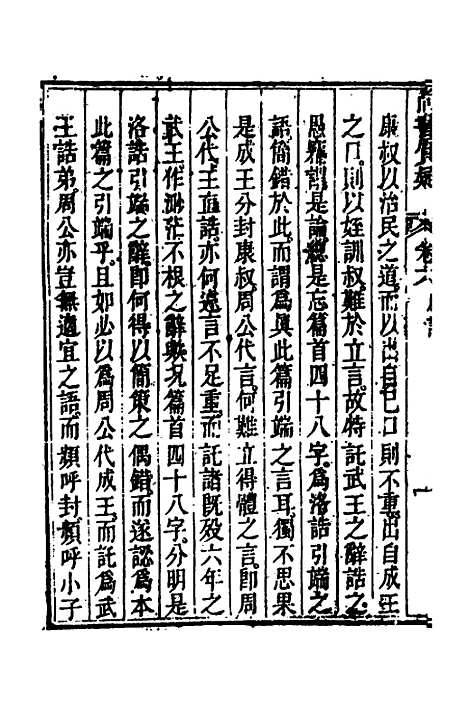 康叔以治民之道而以出自己口則不重出自成王
之口則以姪訓叔難於立言故特託武王之辭誥之
愚竊謂是論總是忘篇首四十八字爲洛誥引端之
語簡錯於此而謂爲與此篇引端之言耳獨不思果
是成王分封康叔周公代言何難立得體之言卽周
公代王直誥亦何遽言不足重而託諸旣殁六年之
武王作渺茫不根之辭歟况篇首四十八字分明是
洛誥引端之辭卽何得以簡策之偶錯而遂認爲本
此篇之引端乎且如必以爲周公代成王而託爲武
王誥弟周公亦豈無適宜之語而頻呼封頻呼小子
尚書質疑 卷六